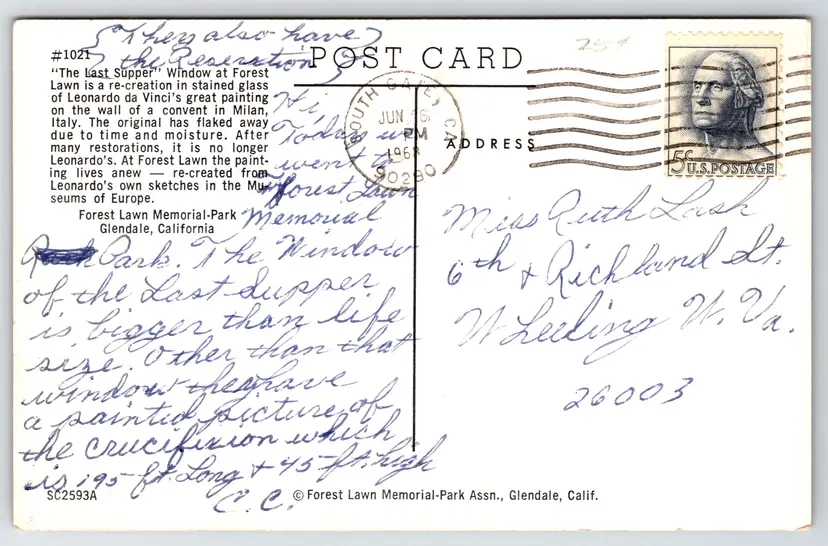 {They also have}
{the Reseration}
#1021
"The Last Supper" Window at Forest
Lawn is a re-creation in stained glass
of Leonardo da Vinci's great painting
on the wall of a convent in Milan,
Italy. The original has flaked away
due to time and moisture. After
many restorations, it is no longer
Leonardo's. At Forest Lawn the paint-
ing lives anew — re-created from
Leonardo's own sketches in the Mu-
seums of Europe.
Forest Lawn Memorial-Park
Glendale, California
POST CARD
25¢
SOUTH GATE, CA
JUN
PM
1968
90280
5¢ U.S. POSTAGE
ADDRESS
Hi
Today we
went to
Forest Lawn
Memorial
Park. The Window
of the Last Supper
is bigger than life
size. Other than that
window they have
a painted picture of
the crucifixion which
is 195 ft. Long + 45 ft. high
C.C.
Miss Ruth Lash
6th + Richland St.
Wheeling W. Va.
26003
SC2593A
© Forest Lawn Memorial-Park Assn., Glendale, Calif.